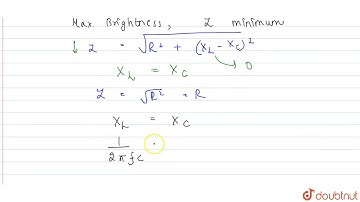 Max. Brightness, Z minimum
↓ Z = √R² + (X_L - X_C)²
X_L = X_C → 0
Z = √R² = R
X_L = X_C
1/2πfC =
doubtnut